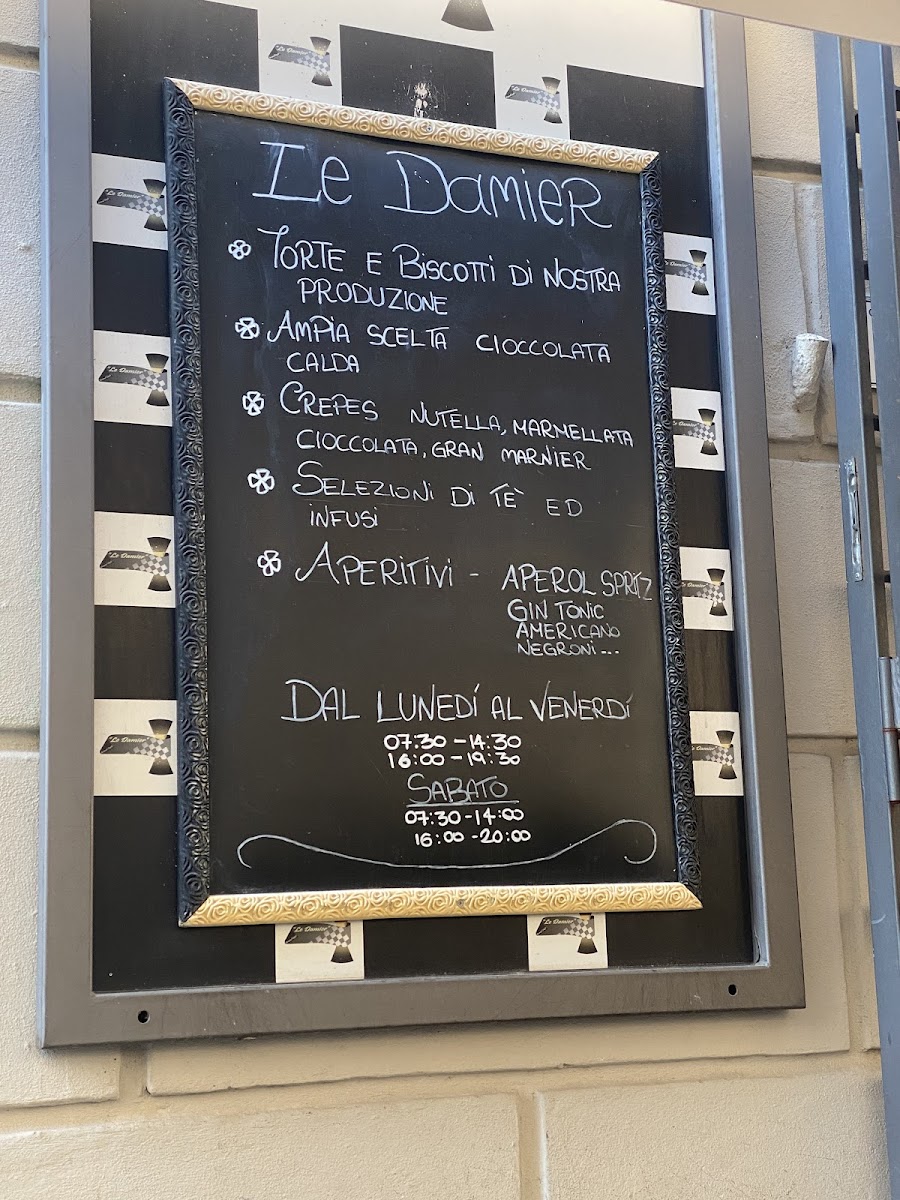 Le Damier
TORTE E BISCOTTI DI NOSTRA
PRODUZIONE
AMPIA SCELTA CIOCCOLATA
CALDA
CREPES NUTELLA, MARMELLATA
CIOCCOLATA, GRAN MARNIER
SELEZIONI DI TÈ ED
INFUSI
APERITIVI - APEROL SPRITZ
GIN TONIC
AMERICANO
NEGRONI...
DAL LUNEDÍ AL VENERDÍ
07:30 - 14:30
16:00 - 19:30
SABATO
07:30 - 14:00
16:00 - 20:00
"Le Damier"
"Le Damier"
"Le Damier"
"Le Damier"
"Le Damier"
"Le Damier"
"Le Damier"
"Le Damier"